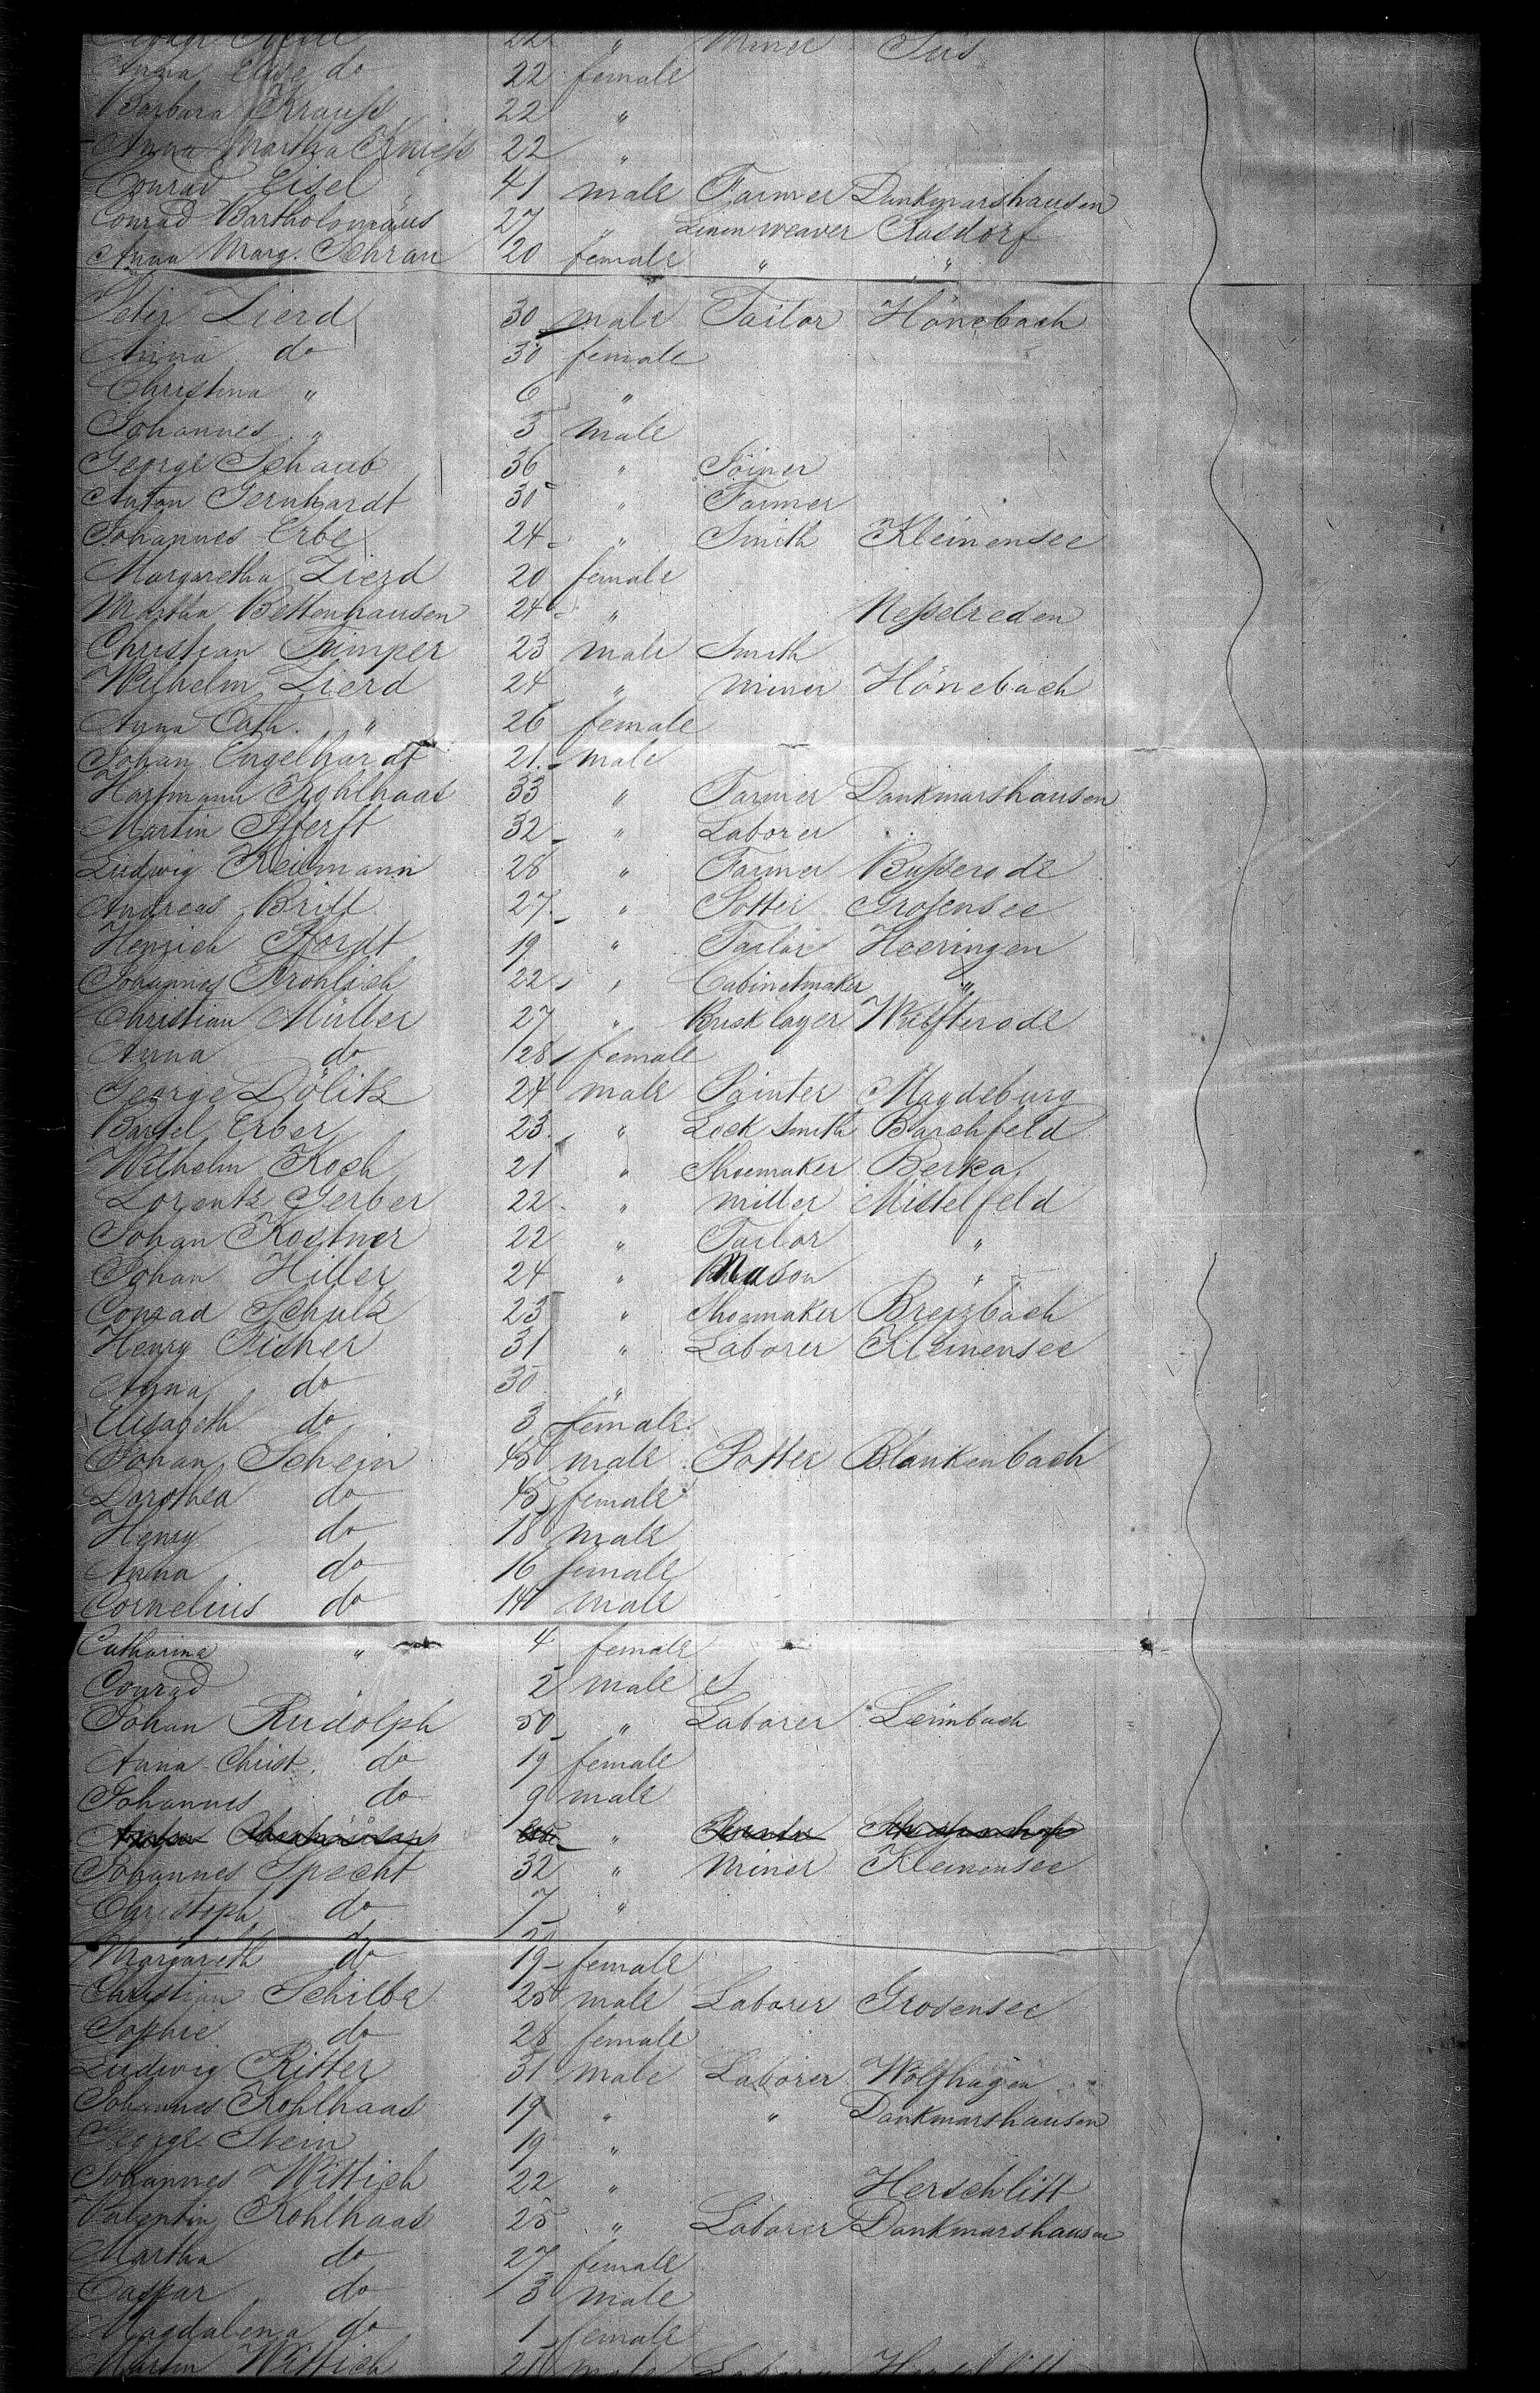 22 " Miner Süs
Anna Elise do 22 female
Barbara Krauss 22 "
Anna Martha 22 "
Conrad Eisel 41 male Farmer Dankmarshausen
Conrad Bartholomäus 27 " Linen weaver Rasdorf
Anna Marg. Schran 20 female " "
Peter Zierd 30 male Tailor Hönebach
Anna do 30 female
Christina " 6 "
Johannes " 5 male
George Schaub 36 " Joiner
Anton Gernhardt 30 " Farmer
Johannes Erbe 24 " Smith Kleinensee
Margaretha Zierd 20 female
Martha Bettenhausen 24 " Nesselreden
Christian Timper 23 male Smith
Wilhelm Zierd 24 " miner Hönebach
Anna Cath. " 26 female
Johan Engelhardt 21 male
Hartmann Kohlhaas 33 " Farmer Dankmarshausen
Martin Pferft 32 " Laborer
Ludwig Reinmann 28 " Farmer Busserode
Andreas Britt 27 " Potter Grosensee
Henrich Pfordt 19 " Tailor Heeringen
Johannes Frohlich 22 " Cabinetmaker "
Christian Müller 27 " Brick layer Wülfterode
Anna do 28 female
George Dölitz 24 male Painter Magdeburg
Bartel Erber 23 " Lock Smith Barchfeld
Wilhelm Koch 21 " Shoemaker Berka
Lorentz Gerber 22 " miller Mistelfeld
Johan Kostner 22 " Tailor "
Johan Hiller 24 " Mason "
Conrad Schulz 23 " Shoemaker Breizbach
Henry Fisher 31 " Laborer Kleinensee
Anna do 30 "
Elisabeth do 3 female
Johan Schein 45 male Potter Blankenbach
Dorothea do 45 female
Henry do 18 male
Anna do 16 female
Cornelius do 14 male
Catharina " 4 female
Conrad " 2 male
Johan Rudolph 50 " Laborer Leimbach
Anna Christ. do 19 female
Johannes do 9 male
"
Johannes Specht 32 " Miner Kleinensee
Christoph do 7 "
Margareth do 19 female
Christian Schilbe 25 male Laborer Grosensee
Sophie do 28 female
Ludwig Ritter 31 male Laborer Wolfhagen
Johannes Kohlhaas 19 " " Dankmarshausen
George Stein 19 "
Johannes Wittich 22 " Herschlitt
Valentin Kohlhaas 25 " Laborer Dankmarshausen
Martha do 27 female
Caspar do 3 male
Magdalena do 1 female
Martin Wittich male